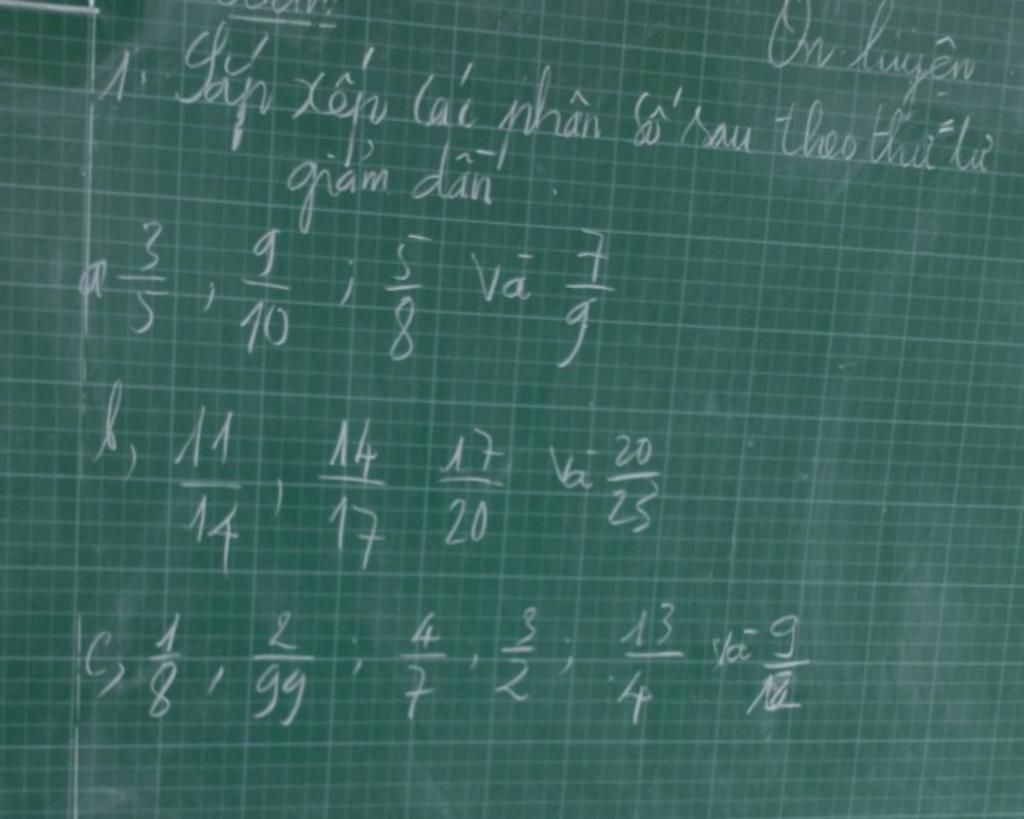 Ôn luyện
1. Sắp xếp các phân số sau theo thứ tự
giảm dần
a 3/5 , 9/10 ; 5/8 và 7/9
b, 11/14 , 14/17 17/20 và 20/23
c, 1/8 , 2/99 ; 4/7 , 3/2 ; 13/4 và